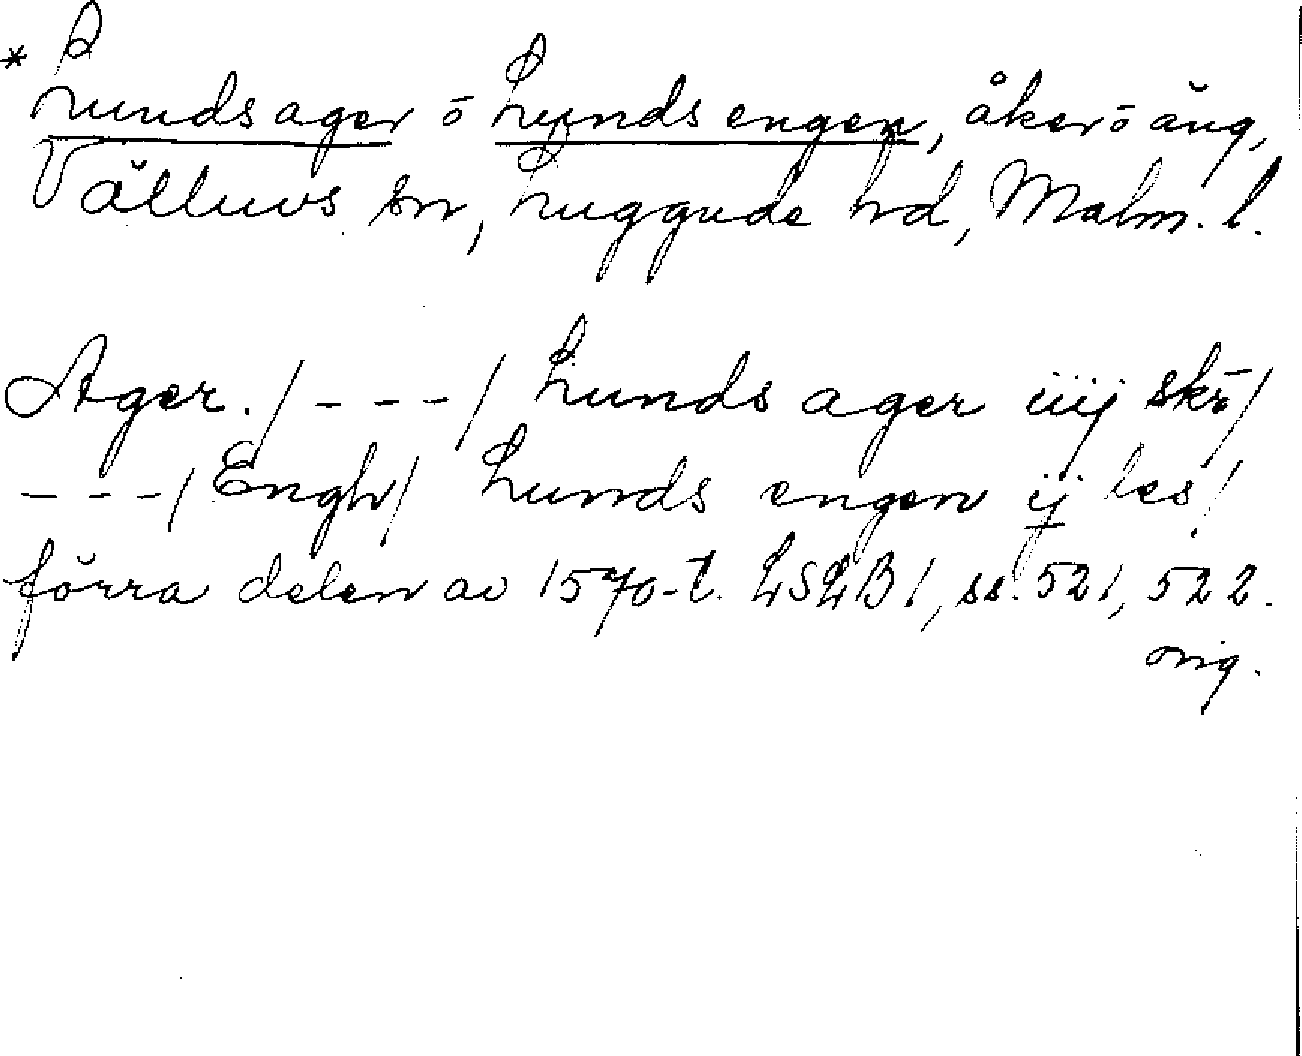 * Lunds ager ō Lunds engen, åker ō äng,
Välluvs sn, Luggude hd, Malm. l.
Ager. / - - - / Lunds ager iiij skr̄ /
- - - / Engh / Lunds engen ij les /
förra delen av 1570-t. LSLB 1, ss. 521, 522.
orig.